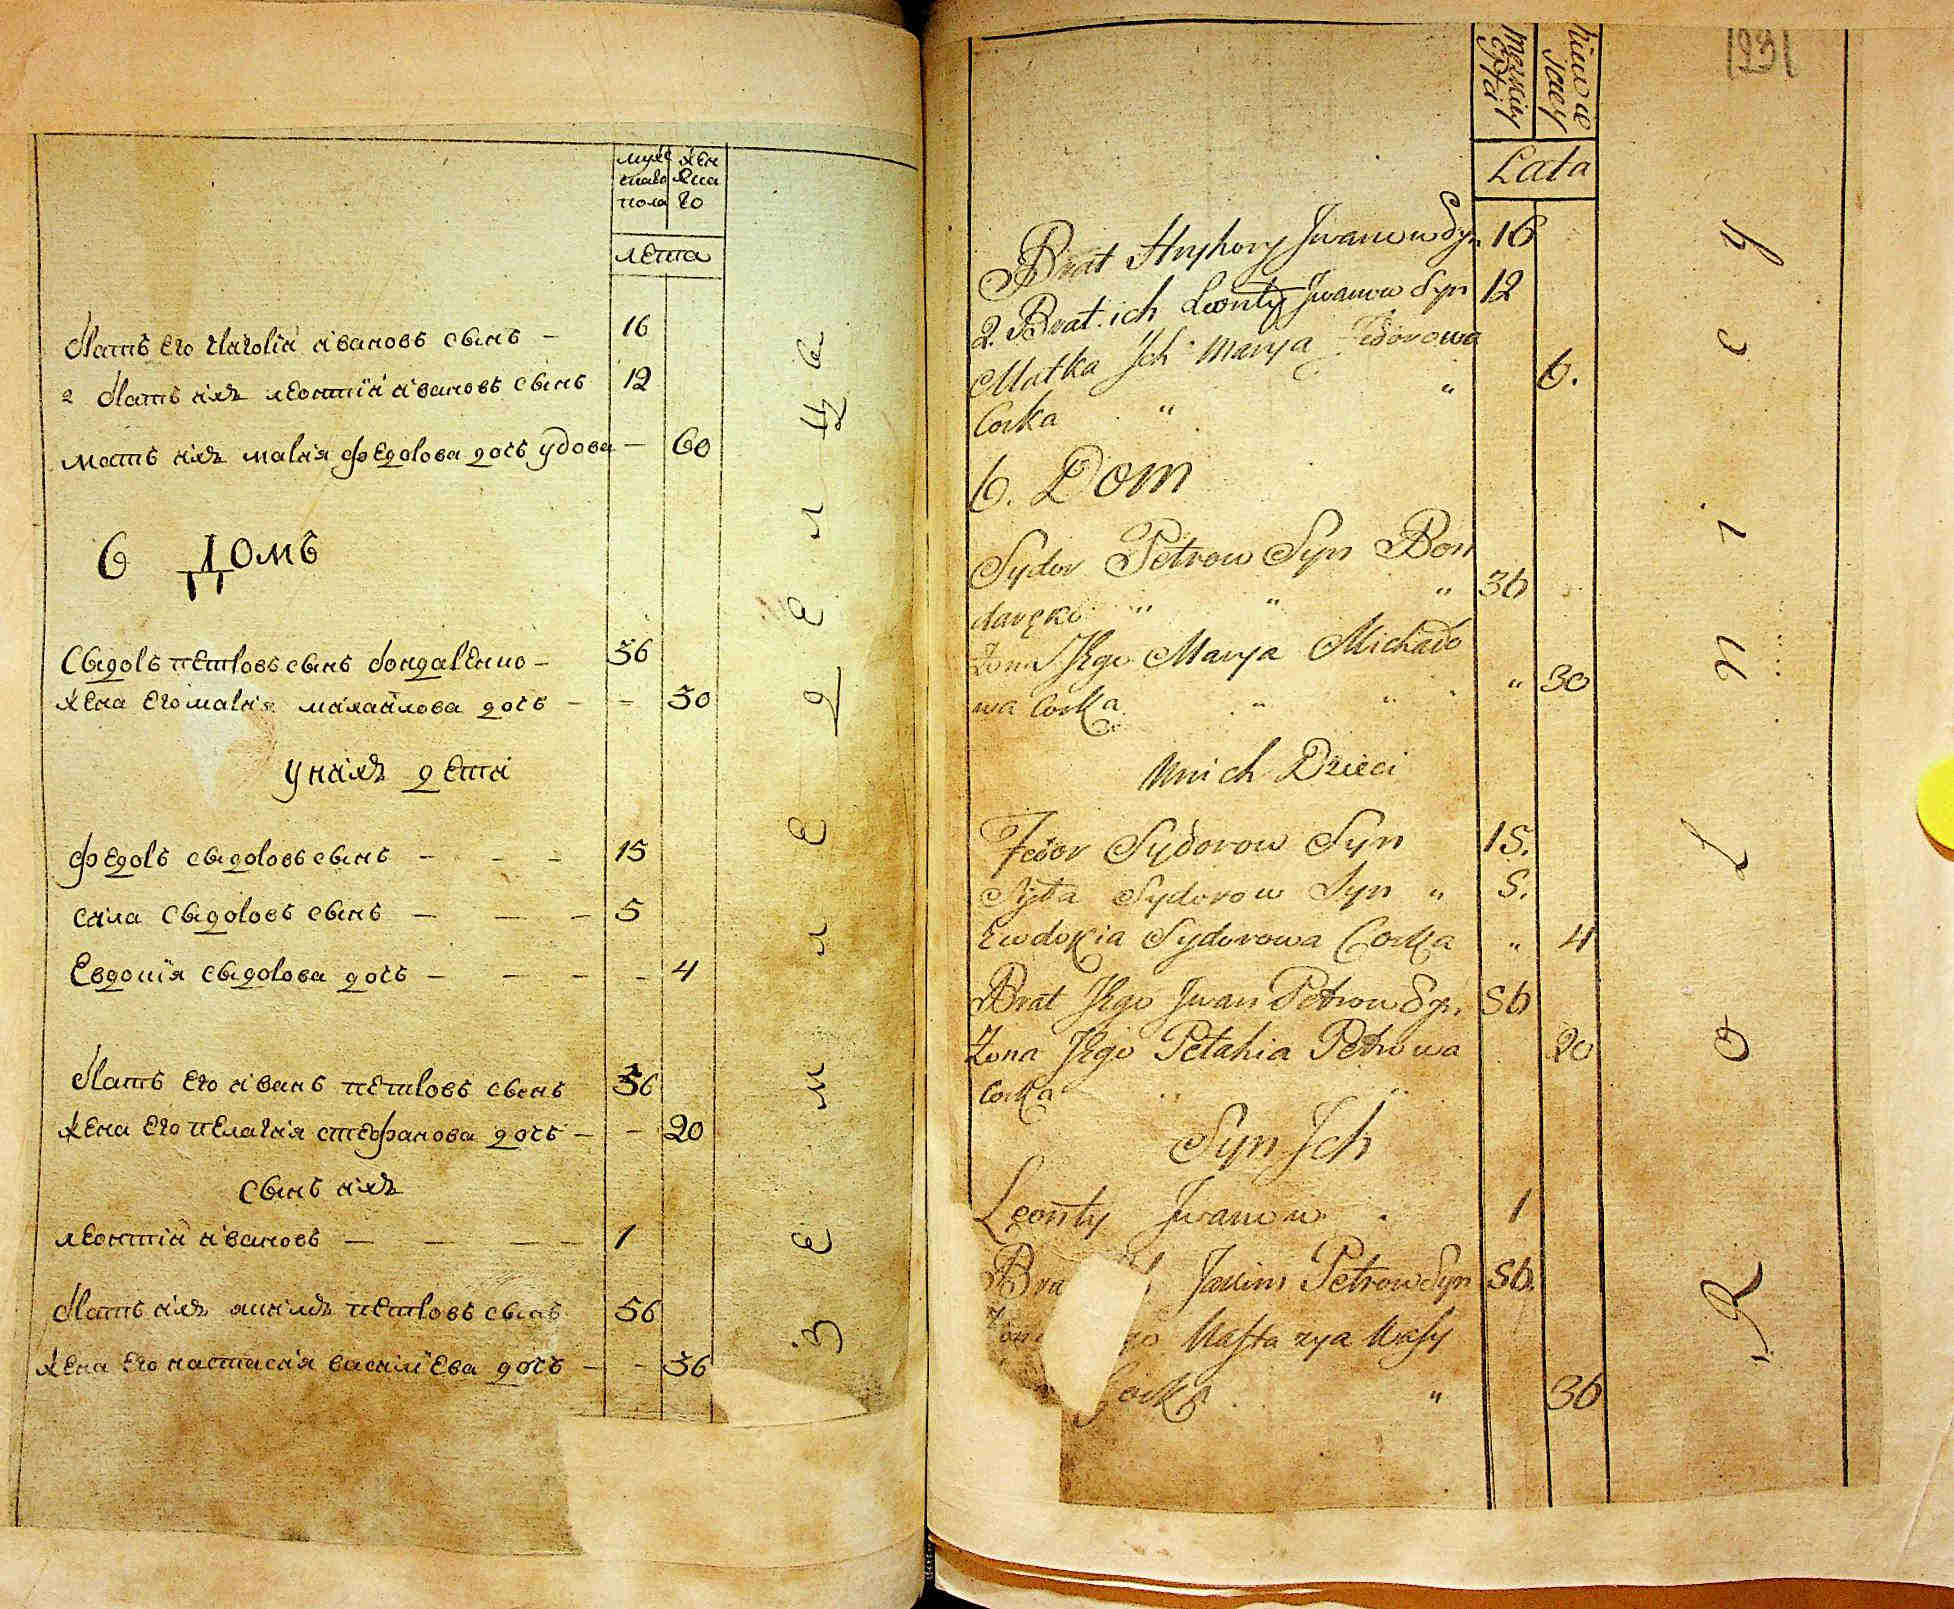 муже
скаго
пола
жен
ска
го
лета
братъ его григорій ивановъ сынъ — 16
2 братъ ихъ леонтій ивановъ сынъ 12
мать ихъ марія федорова дочь удова — 60
6 Домъ
Сыдоръ петровъ сынъ бондаренко — 36
жена его марія михайлова дочь — — 30
у нихъ дети
федоръ сыдоровъ сынъ — — — 15
сила сыдоровъ сынъ — — — 5
Евдокія сыдорова дочь — — — — 4
братъ его иванъ петровъ сынъ 36
жена его пелагія стефанова дочь — — 20
сынъ ихъ
леонтій ивановъ — — — — 1
братъ ихъ якимъ петровъ сынъ 56
жена его настасія василіева дочь — — 36
земледелецъ
123
Lata
Brat Hryhory Jwanow Syn 16
2. Brat ich Leonty Jwanow Syn 12
Matka Jch Marya Fedorowa
Corka " " 6.
6. Dom
Sydor Petrow Syn Bon
daręko " " " 36
Zona Jego Marya Michało
wa Corka " " " 30
Unich Dzieci
Fedor Sydorow Syn 15.
Syła Sydorow Syn " 5.
Ewdokia Sydorowa Corka " 4
Brat Jego Jwan Petrow Syn 56
Zona Jego Pełahia Petrowa 20
Corka
Syn Jch
Leonty Jwanow 1
Bra Jakim Petrow Syn 56.
Zona go Nastazya Wasy
Corka " 36
Rolniczy